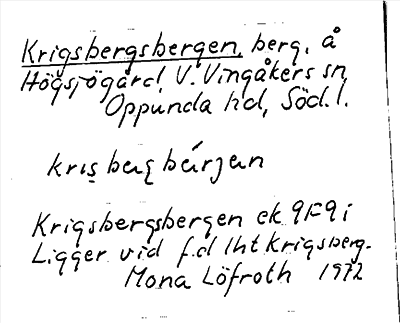 Krigsbergsbergen, berg, å
Högsjögård, V. Vingåkers sn,
Oppunda hd, Söd.l.
kris̩bærjbǽrjen
Krigsbergsbergen ek 9F9i
Ligger vid f.d lht Krigsberg.
Mona Löfroth 1972